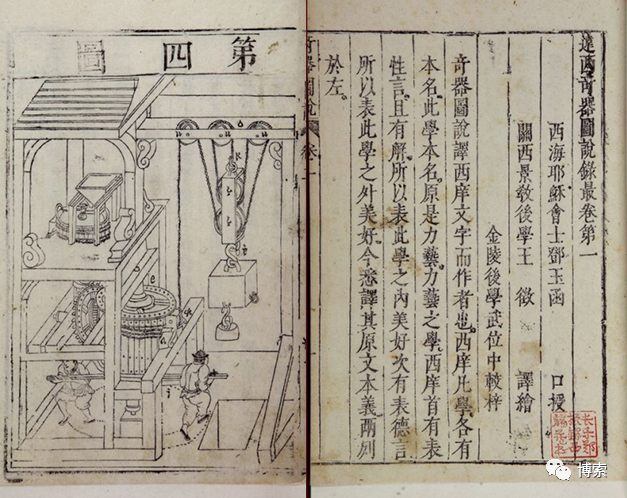 遠西奇器圖說錄最卷第一
西海耶穌會士鄧玉函 口授
關西景教後學王徵 譯繪
金陵後學武位中較梓
奇器圖說譯西庠文字而作者也。西庠凡學各有
本名。此學本名。原是力藝。力藝之學。西庠首有表
性言。且有解。所以表此學之內美好。次有表德言
所以表此學之外美好。今悉譯其原文本義兩列
於左。
奇器圖說 卷一
第四圖
博索